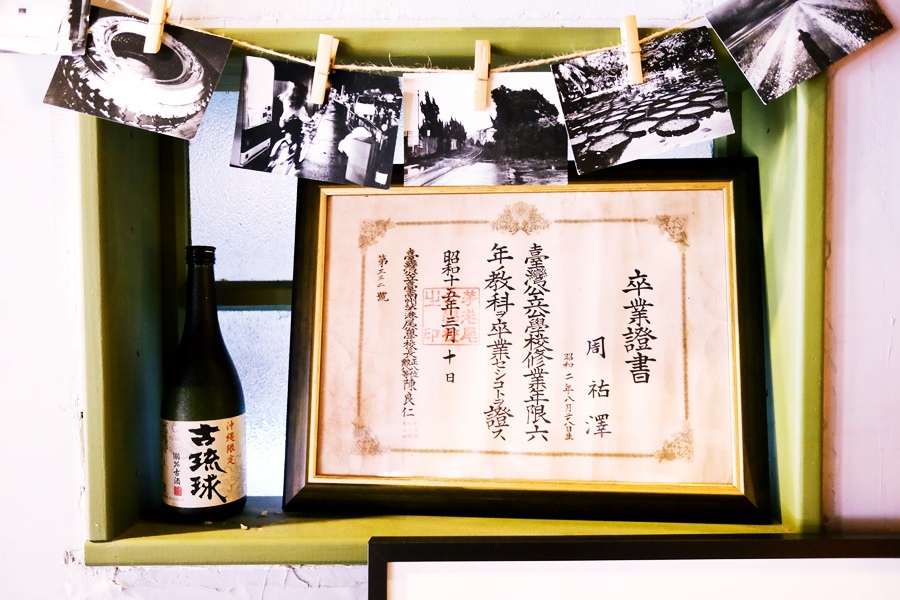 卒業證書
周祐澤
昭和二年八月廿八日生
臺灣公立公學校修業年限六
年ノ教科ヲ卒業セシコトヲ證ス
昭和十五年三月十日
陳良仁
第二三二號
茅港尾
沖縄限定
古琉球
100%古酒